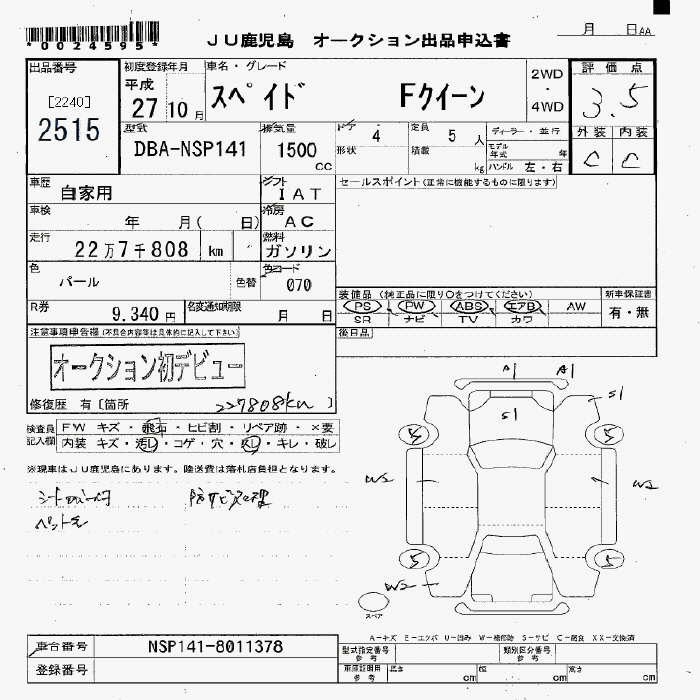 *0024595*
JU鹿児島 オークション出品申込書
月 日AA
出品番号 初度登録年月 車名・グレード 評価点
平成 27 10 月
スペイド Fクイーン
2WD ・ 4WD
3.5
[2240]
2515
型式 排気量 ドア 4 定員 5 人 ディーラー・並行 外装 内装
DBA-NSP141 1500 cc
形状 積載 kg モデル年式 年 ハンドル 左・右
C C
車歴 自家用 シフト IAT セールスポイント(正常に機能するものに限ります)
車検 年 月( 日) 冷房 AC
走行 22万7千808 km 燃料 ガソリン
色 パール 色替 色コード 070
装備品(純正品に限り○をつけてください) 新車保証書
R券 9.340 円 名変通知期限 月 日
PS PW ABS エアB AW 有・無
SR ナビ TV カワ
注意事項申告欄(不具合内容等は具体的に記入して下さい) 後日品
オークション初デビュー
修復歴 有[箇所 227808km ]
検査員記入欄 FW キズ・飛石・ヒビ割・リペア跡・×要
内装 キズ・汚レ・コゲ・穴・スレ・キレ・破レ
※現車はJU鹿児島にあります。陸送費は落札店負担となります。
防サビ処理
A1 A1
S1 S1
5 5
W2 W2
5 5
W2
スペア
A-キズ E-エクボ U-凹み W-補修跡 S-サビ C-腐食 XX-交換済
車台番号 NSP141-8011378 型式指定番号 参考 類別区分番号 参考
登録番号 車庫証明用 参考 長さ cm 幅 cm 高さ cm